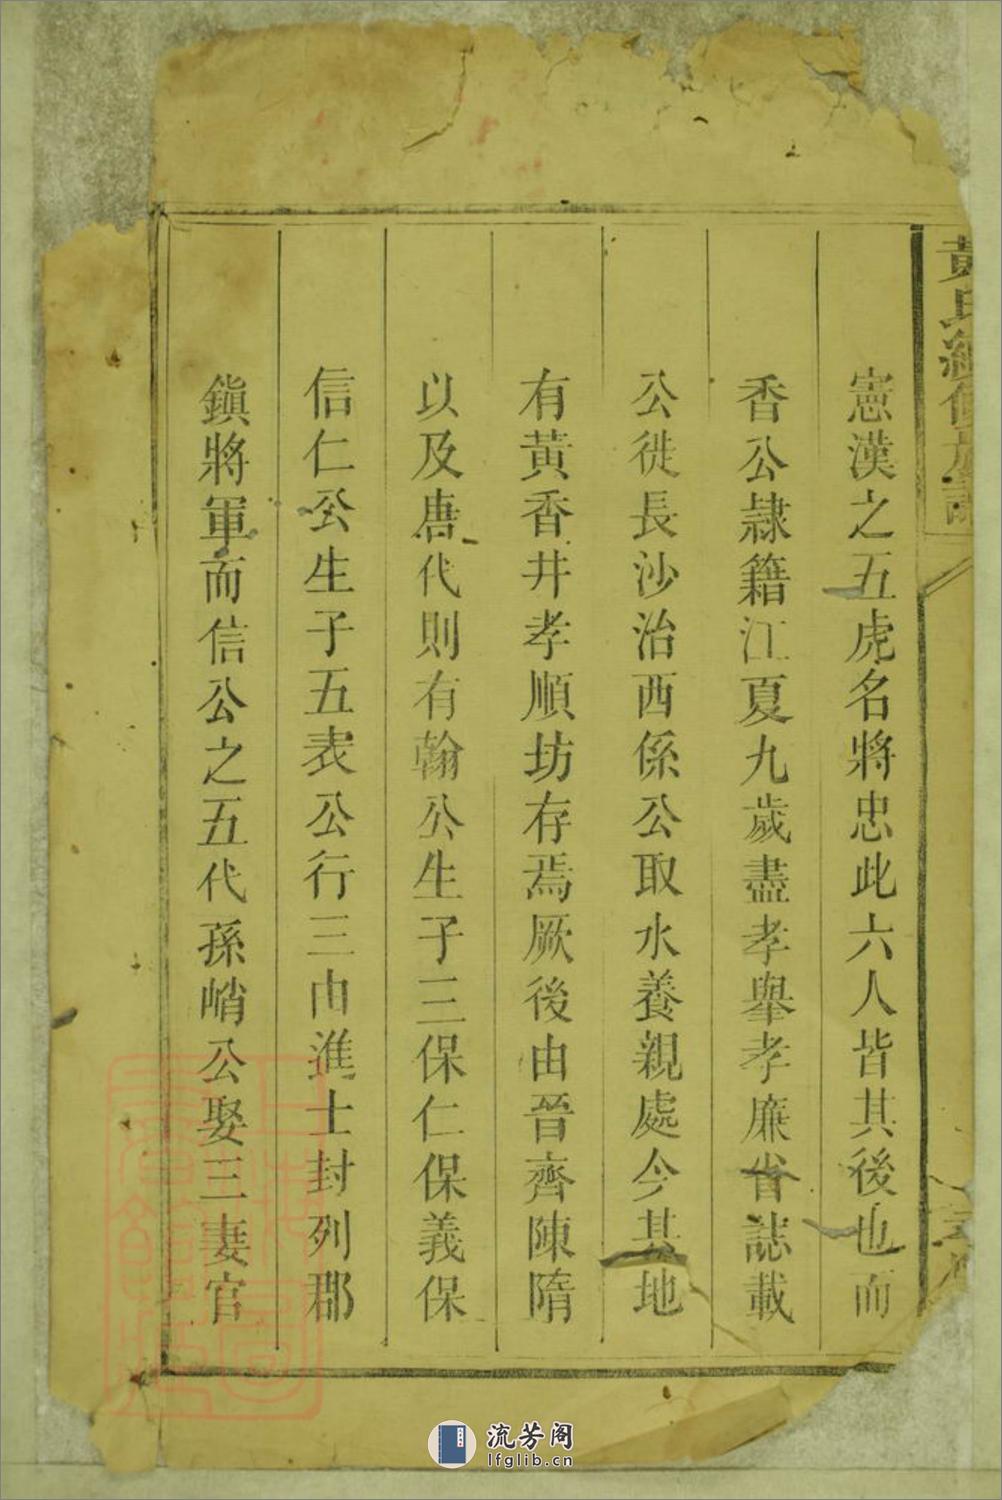 黃氏續修族譜
憲漢之五虎名將忠此六人皆其後也而
香公隷籍江夏九歲盡孝舉孝廉省誌載
公徙長沙治西係公取水養親處今其地
有黃香井孝順坊存焉厥後由晉齊陳隋
以及唐代則有翰公生子三保仁保義保
信仁公生子五表公行三由進士封列郡
鎭將軍而信公之五代孫峭公娶三妻官
流芳阁
lfglib.cn